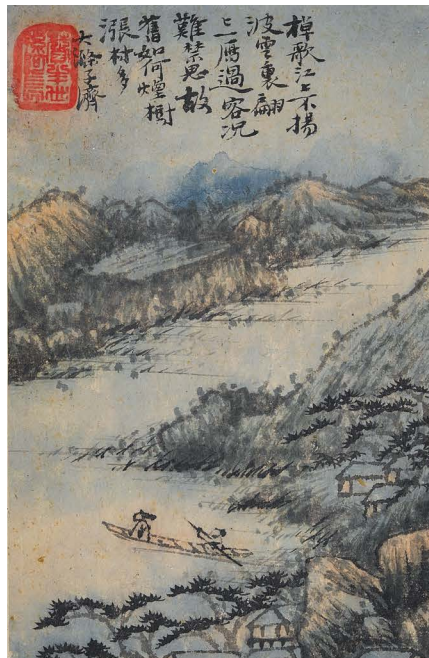 棹歌江上不揚
波雲裏翩
〻一鴈過客况
難禁思故
舊如何煙樹
漲村多
大滌子濟